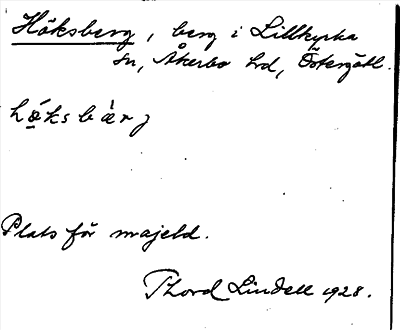 Höksberg, berg i Lillkyrka
sn, Åkerbo hd, Östergötl.
hö́ksbàrj
Plats för majeld.
Thord Lindell 1928.